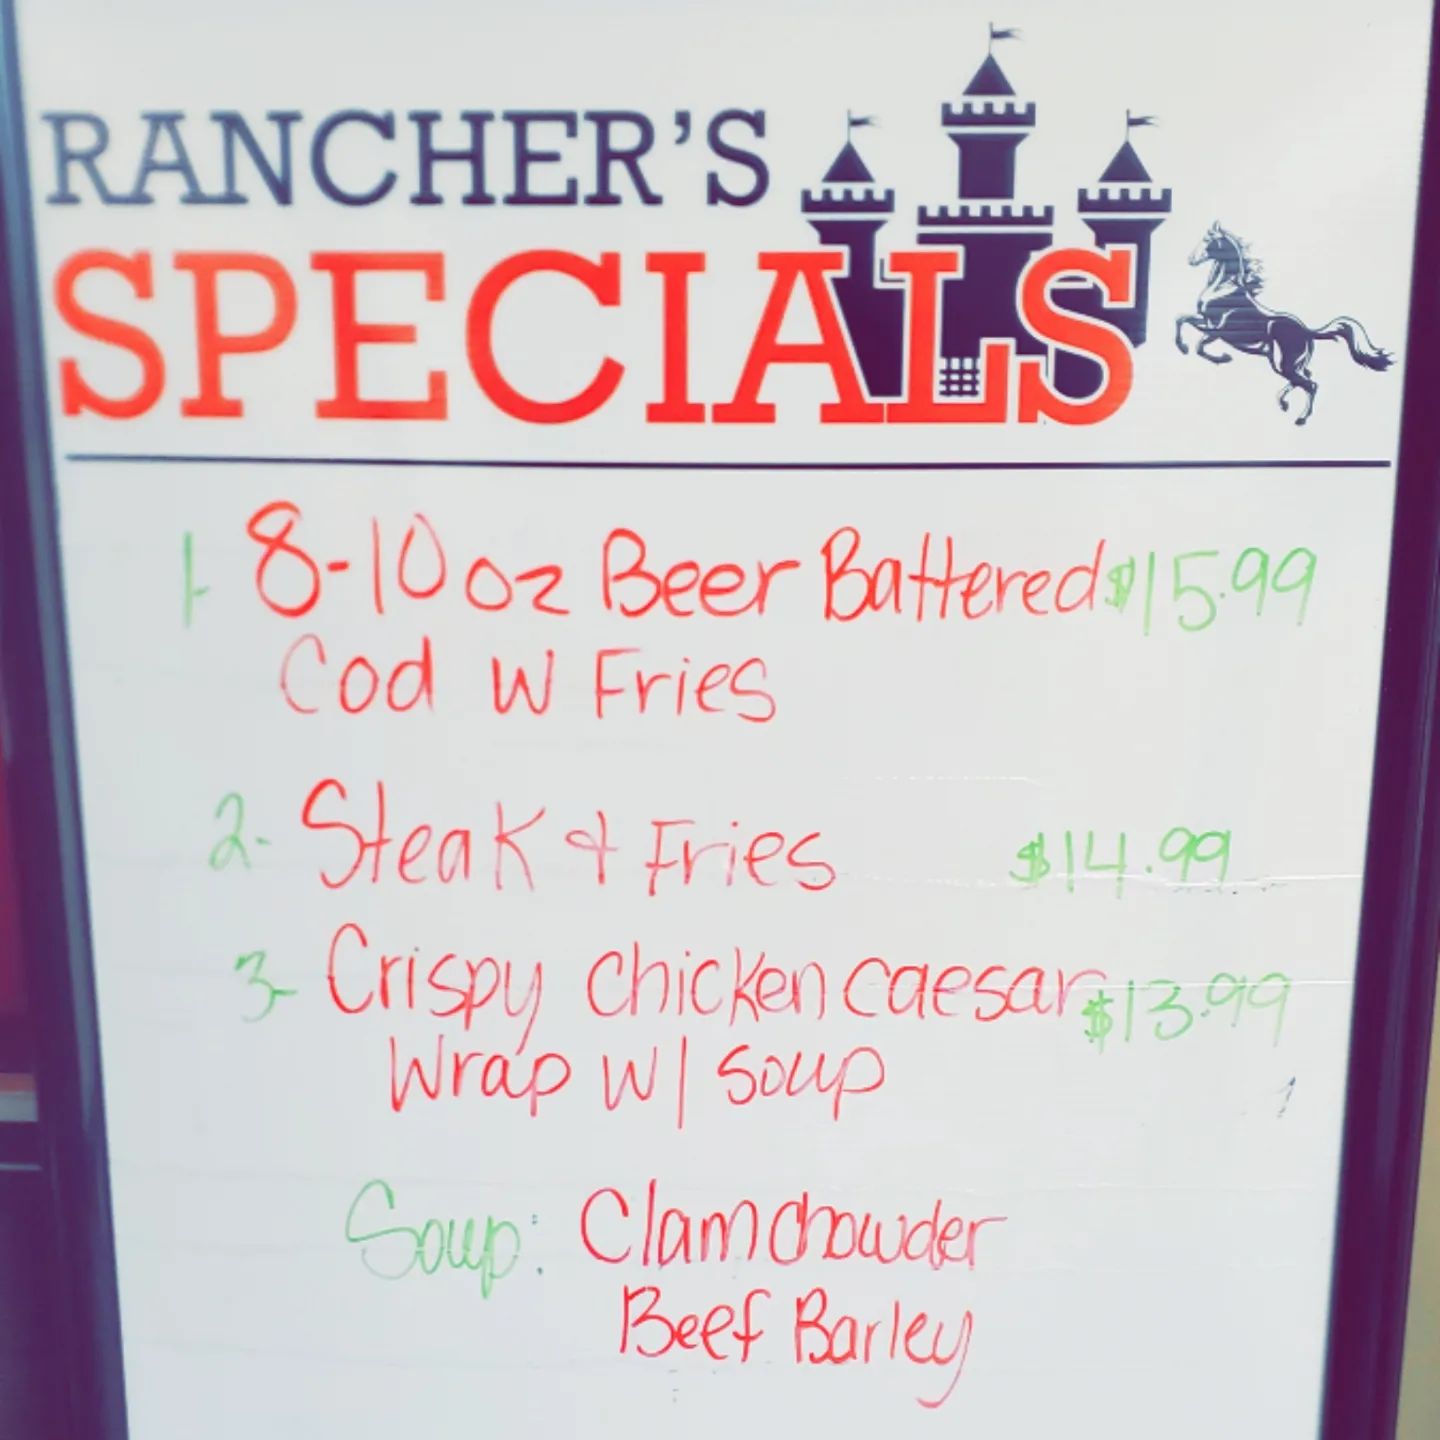 RANCHER'S
SPECIALS
1- 8-10 oz Beer Battered $15.99
Cod W Fries
2- Steak & Fries $14.99
3- Crispy Chicken Caesar $13.99
Wrap W/ Soup
Soup: Clam Chowder
Beef Barley